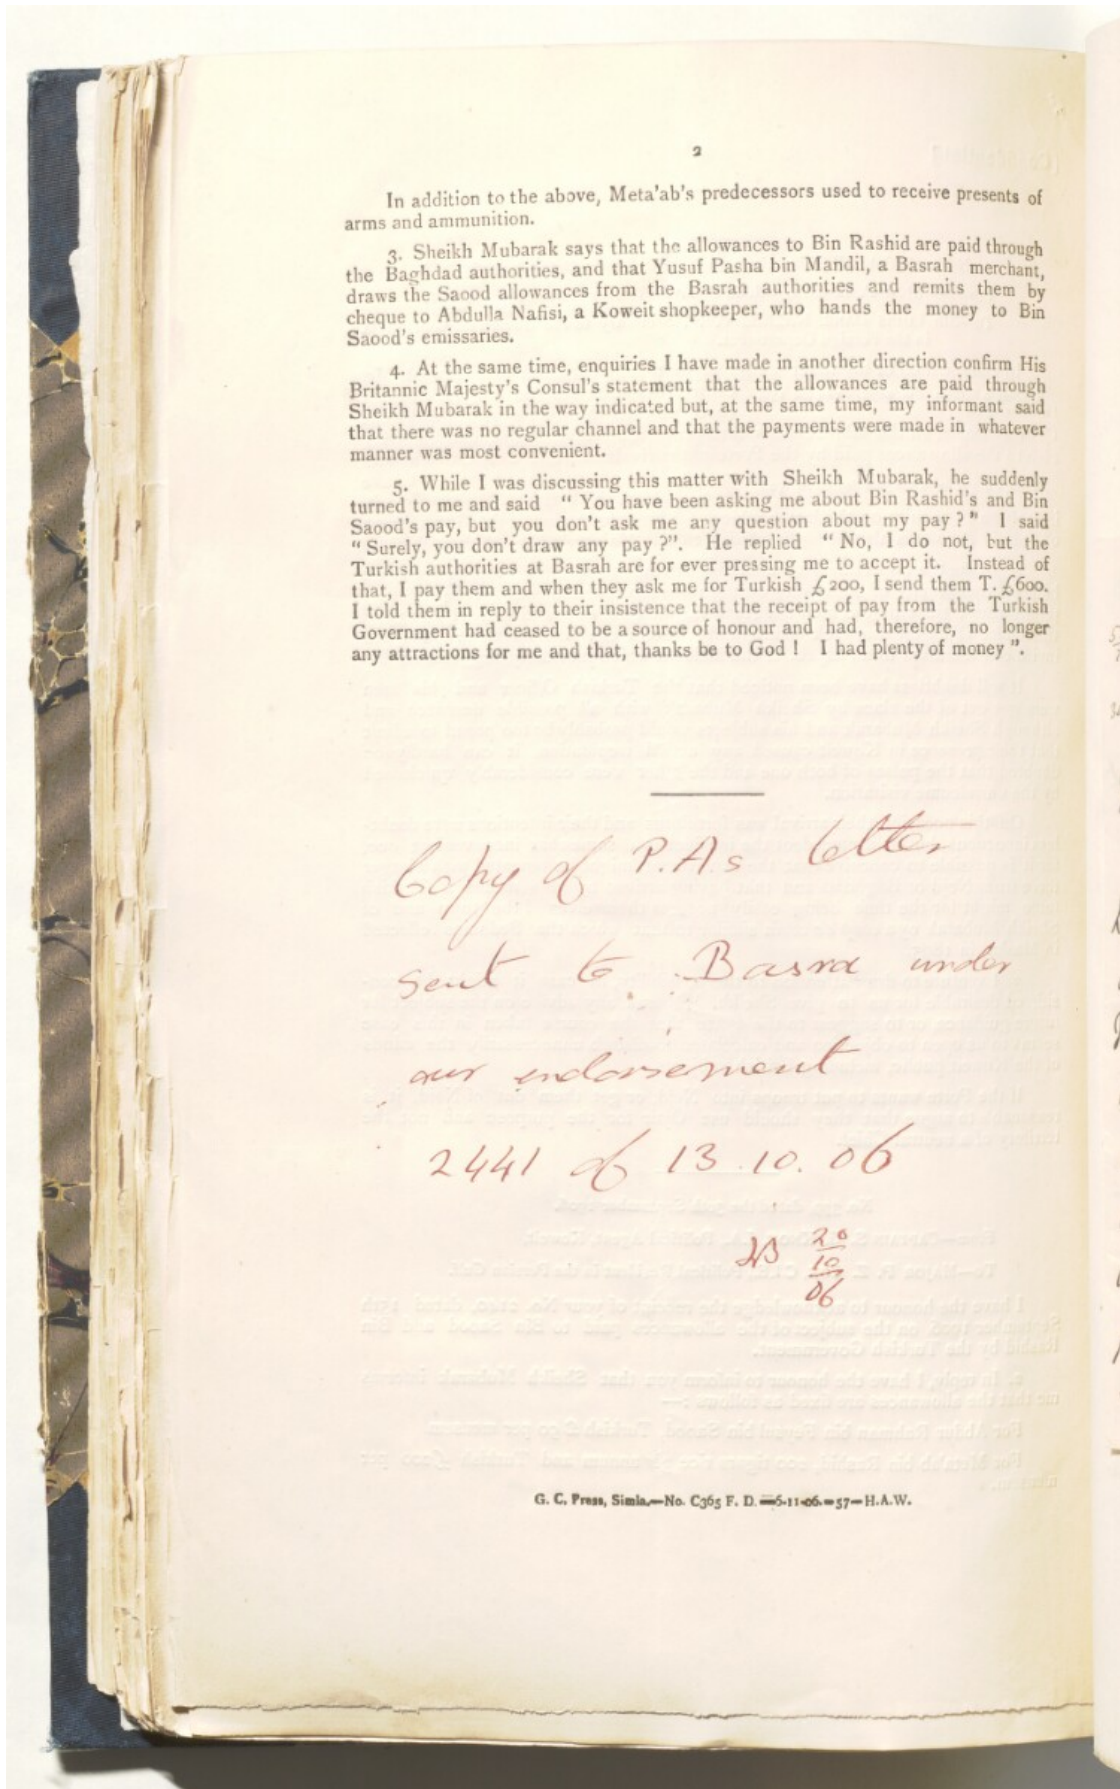 2
In addition to the above, Meta'ab's predecessors used to receive presents of
arms and ammunition.
3. Sheikh Mubarak says that the allowances to Bin Rashid are paid through
the Baghdad authorities, and that Yusuf Pasha bin Mandil, a Basrah merchant,
draws the Saood allowances from the Basrah authorities and remits them by
cheque to Abdulla Nafisi, a Koweit shopkeeper, who hands the money to Bin
Saood's emissaries.
4. At the same time, enquiries I have made in another direction confirm His
Britannic Majesty's Consul's statement that the allowances are paid through
Sheikh Mubarak in the way indicated but, at the same time, my informant said
that there was no regular channel and that the payments were made in whatever
manner was most convenient.
5. While I was discussing this matter with Sheikh Mubarak, he suddenly
turned to me and said " You have been asking me about Bin Rashid's and Bin
Saood's pay, but you don't ask me any question about my pay ? " I said
" Surely, you don't draw any pay ?". He replied " No, I do not, but the
Turkish authorities at Basrah are for ever pressing me to accept it. Instead of
that, I pay them and when they ask me for Turkish £200, I send them T. £600.
I told them in reply to their insistence that the receipt of pay from the Turkish
Government had ceased to be a source of honour and had, therefore, no longer
any attractions for me and that, thanks be to God ! I had plenty of money ".
Copy of P.A.s letter
sent to Basra under
our endorsement
2441 of 13.10.06
20
10
06
G. C. Press, Simla.—No. C365 F. D.—6-11-06.—57—H.A.W.